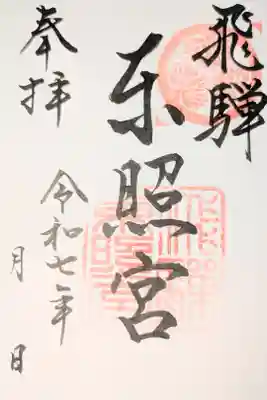 飛騨
东照宮
奉拝
令和七年
月 日